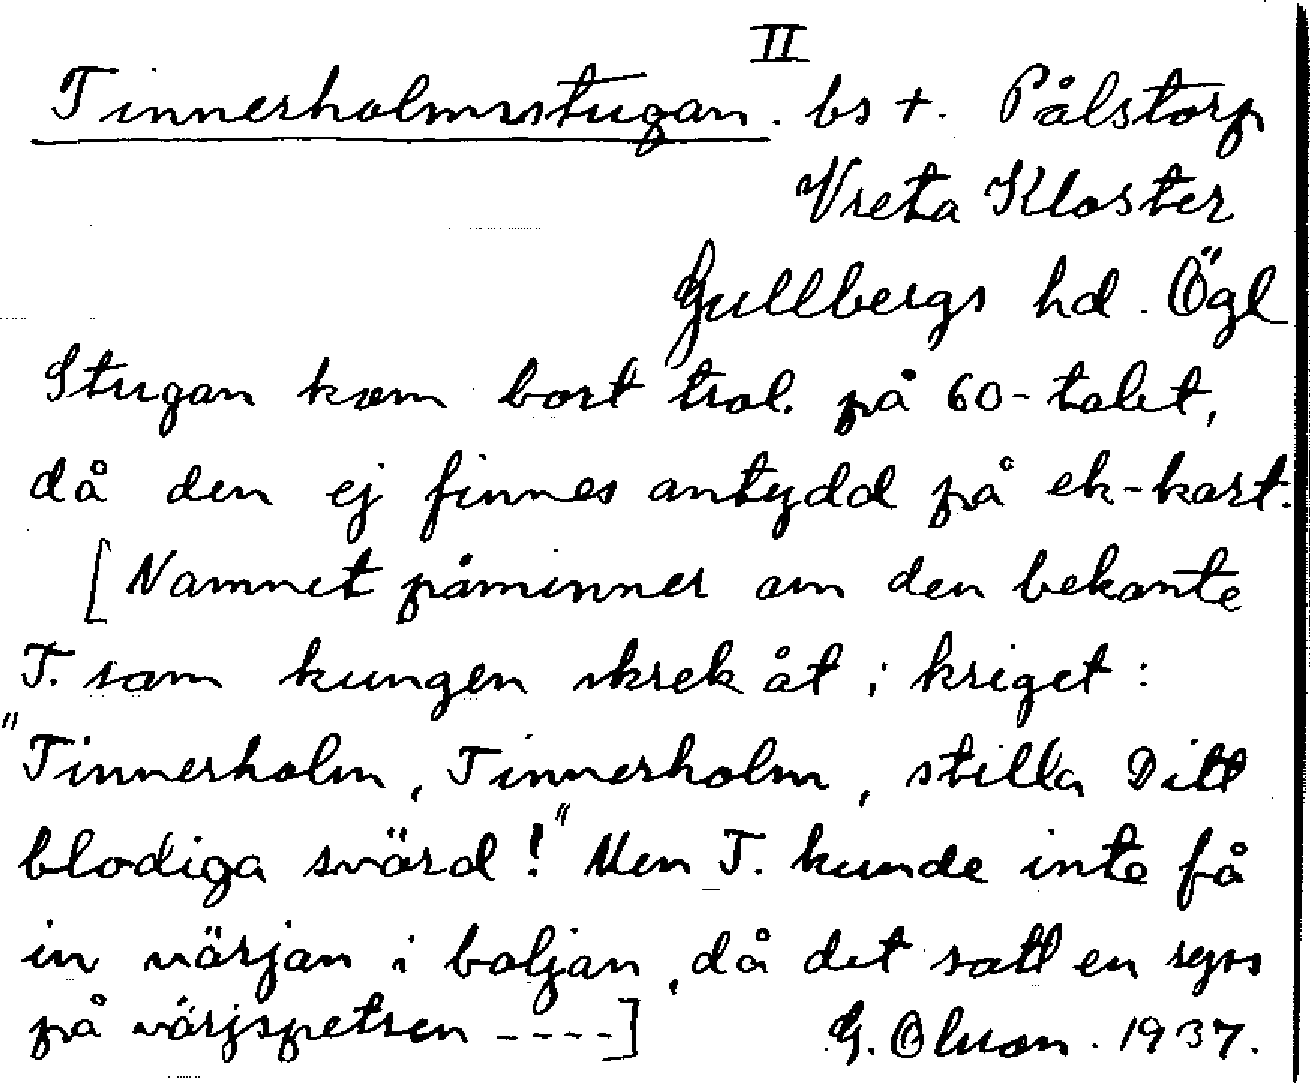 II
Tinnerholmsstugan. bs +. Pålstorp
Vreta Kloster
Gullbergs hd. Ögl
Stugan kom bort trol. på 60-talet,
då den ej finnes antydd på ek-kart.
[Namnet påminner om den bekante
T. som kungen skrek åt i kriget:
"Tinnerholm, Tinnerholm, stilla Ditt
blodiga svärd!" Men T. kunde inte få
in värjan i baljan, då det satt en ryss
på värjspetsen ----]
G. Olsson. 1937.